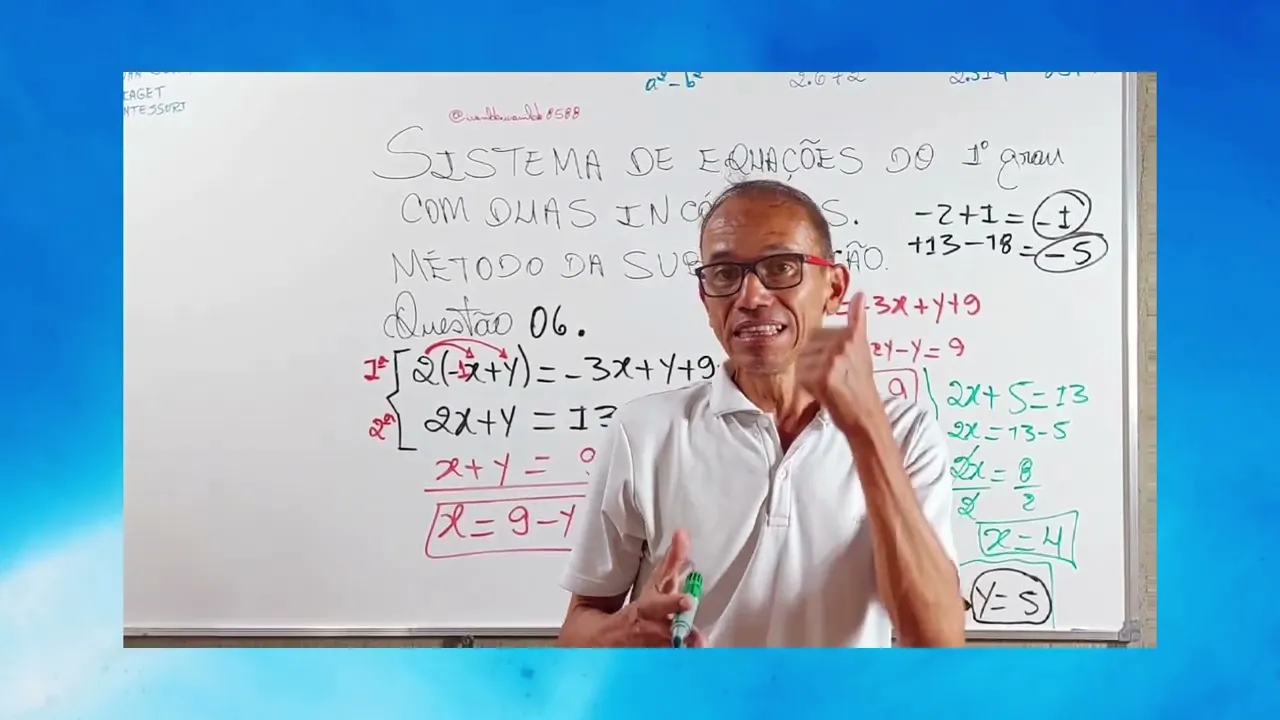 IAGET
NTESSORI
a² - b²
2.6+2
2.314
SISTEMA DE EQUAÇÕES DO 1º grau
COM DUAS INCÓ S.
MÉTODO DA SUB ÃO.
Questão 06.
1ª 2(-1x+y) = -3x+y+9
2ª 2x+y = 13
x+y = 9
x = 9-y
-2+1 = -1
+13-18 = -5
= -3x+y+9
2y-y = 9
9
2x+5=13
2x = 13-5
2x = 8
2 2
x = 4
y = 5